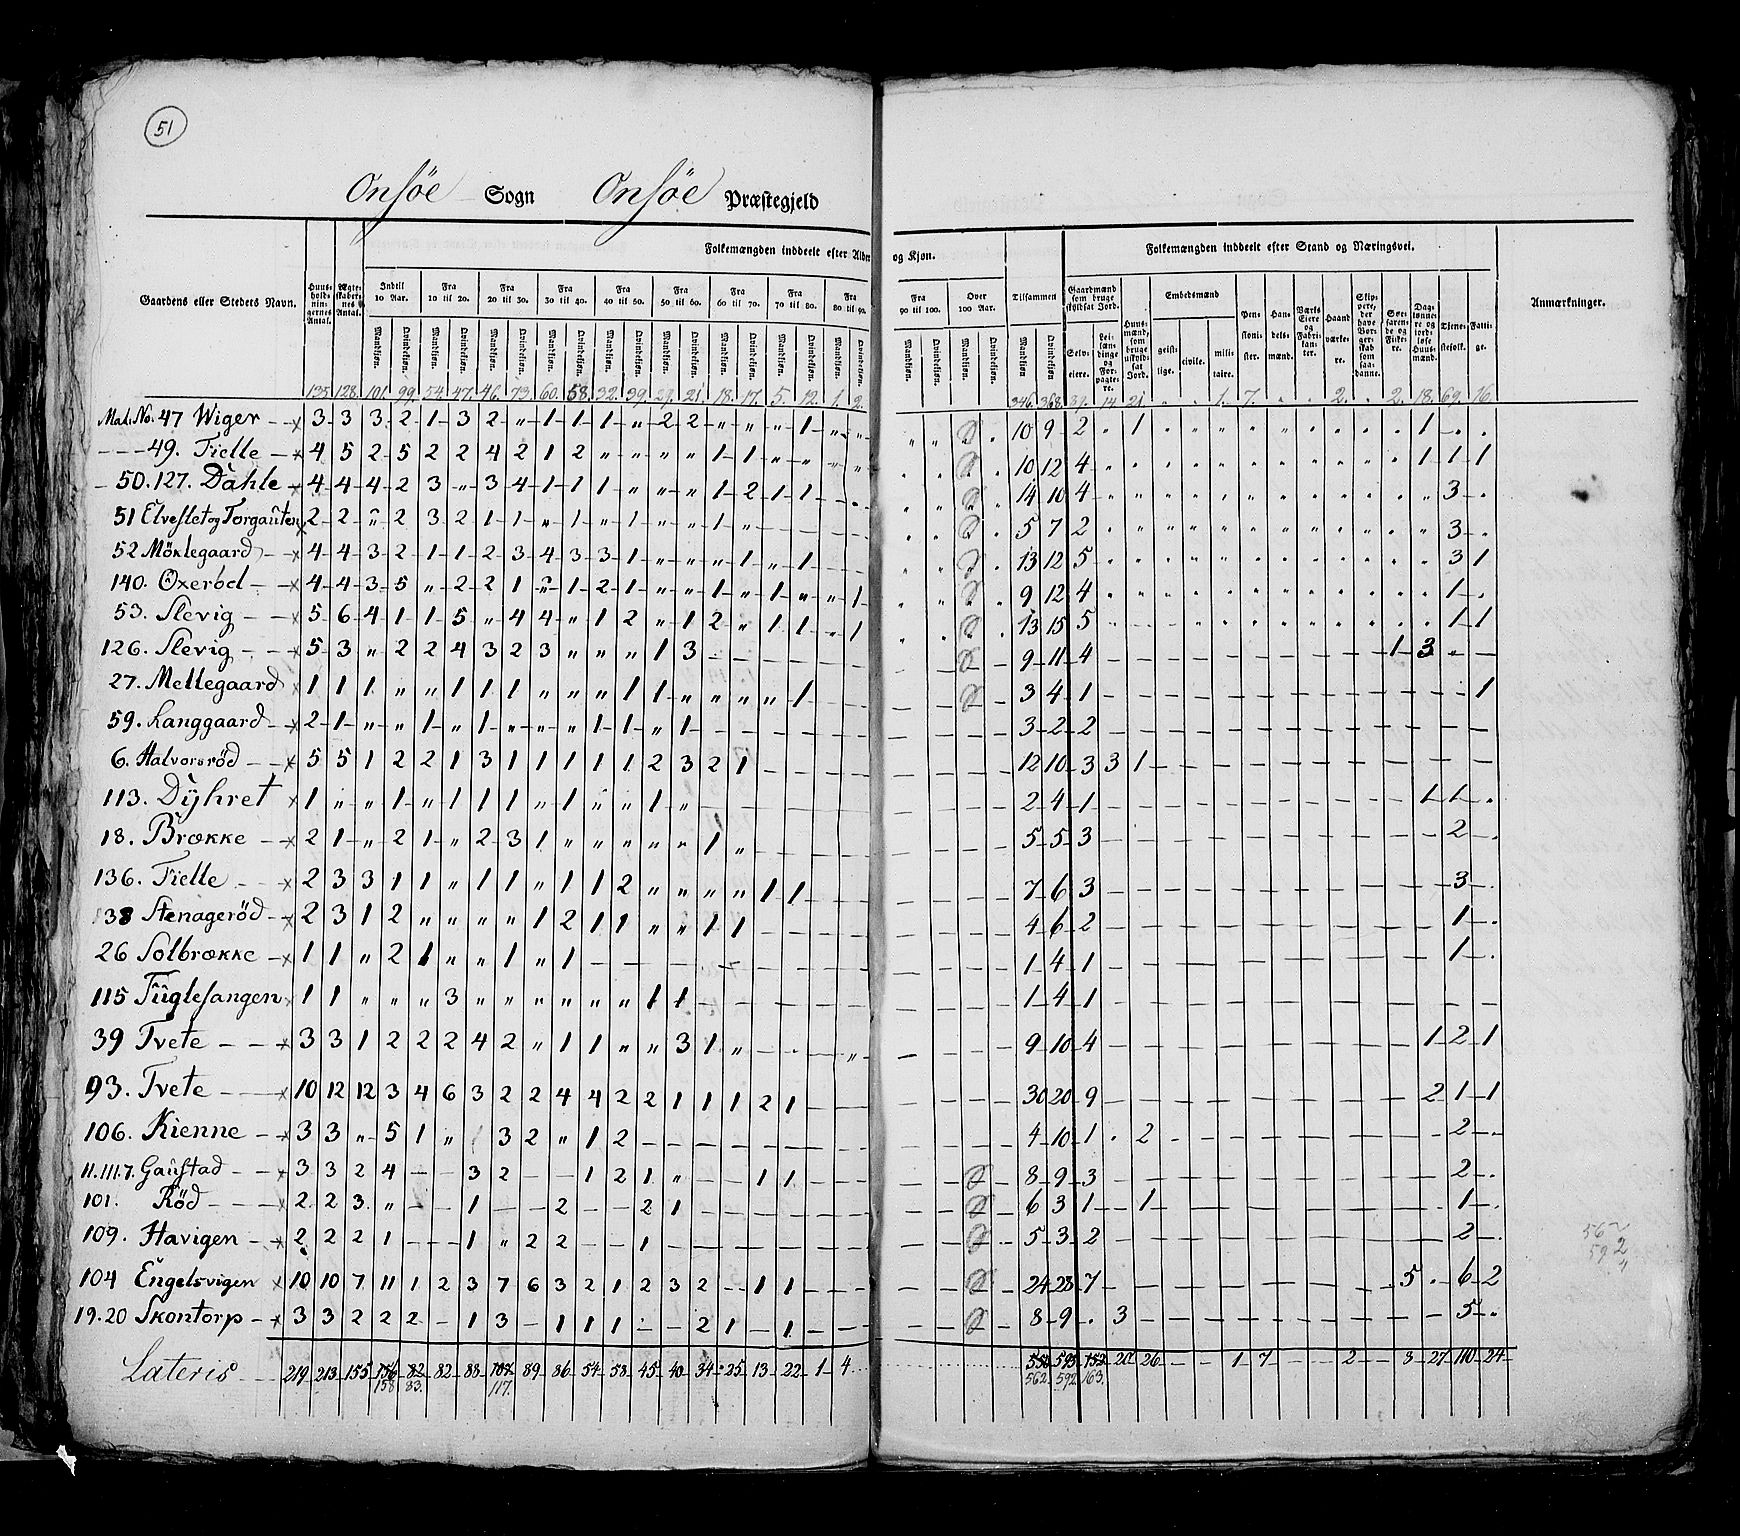 51
Onsöe Sogn Onsöe Præstegjeld
Folkemængden inddeelt efter Alder og Kjøn.
Folkemængden inddeelt efter Stand og Næringsvei.
Gaardens eller Stedets Navn. Huusholdningernes Antal. Ægteskabernes Antal. Indtil 10 Aar. Fra 10 til 20. Fra 20 til 30. Fra 30 til 40. Fra 40 til 50. Fra 50 til 60. Fra 60 til 70. Fra 70 til 80. Fra 80 til 90. Fra 90 til 100. Over 100 Aar. Tilsammen Gaardmænd som bruge skyldsat Jord. Huusmænd, som bruge uskyldsat Jord. Embedsmænd Pensionister. Handelsmænd. Værks Eiere og Fabrikanter. Haandværkere. Skippere, der have Borgerskab som saadanne. Søefarende og Fiskere. Daglønnere og jordløse Huusmænd. Tjenestefolk. Fattige. Anmærkninger.
Mandkjøn. Qvindekjøn. Selveiere. Leilændinge og Forpagtere. geistlige. civile. militaire.
135 128 101. 99 54 47. 46. 73. 60. 58. 32. 39. 29. 21. 18. 17. 5. 12. 1. 2. 346. 368. 39. 14 21 " " 1. 7. " " 2. " 2. 18. 69. 16.
Mat. No. 47 Wiger x 3 3 3 2 1 3 2 " 1 1 1 " 2 2 " " " 1 " " 10 9 2 " 1 1
49. Fielle x 4 5 2 5 2 2 4 2 1 2 " " " " 1 1 " " " " 10 12 4 1 1 1
50. 127. Dahle x 4 4 4 2 3 " 3 4 1 1 1 " " " 1 2 1 1 14 10 4 3
51 Elveslet og Torgauten x 2 2 " 2 3 2 1 1 " 1 " 1 " " 1 " 5 7 2 3
52 Möklegaard x 4 4 3 2 1 1 2 3 4 3 3 1 " " " 1 " 1 13 12 5 3 1
140. Oxerböl x 4 4 3 5 " 2 2 1 " 1 2 1 " 1 " 1 " " 1 9 12 4 1
53. Slevig x 5 6 4 1 1 5 " 4 4 " 1 2 " 1 2 " 1 1 " 1 13 15 5 1 1
126. Slevig x 5 3 " 2 2 4 3 2 3 " " " 1 3 9 11 4 1 3
27. Mellegaard x 1 1 1 " " 1 1 1 " " " 1 1 " " " " 1 3 4 1 1
59. Langgaard x 2 1 " " 1 " 1 " " " 1 1 " 1 3 2 2
6. Halvorsröd x 5 5 1 2 2 1 3 1 1 1 1 1 2 3 2 1 12 10 3 3 1
113. Dÿhret x 1 " " 1 " 1 1 1 " 1 " " 1 " 2 4 1 1 1
18. Brække x 2 1 " 2 1 " 2 3 1 " " " " " 1 " 5 5 3 2
136. Fielle x 2 3 3 1 1 " 1 1 " 1 1 2 " " " " 1 1 7 6 3 3
138 Stenageröd x 2 3 1 2 " " " " 1 2 1 1 " " 1 1 4 6 2 1
26 Solbrække x 1 1 " 2 1 " " 1 " 1 1 4 1 1
115 Fuglesangen x 1 1 " " " 3 " " " " " " 1 1 1 4 1
39 Tvete x 3 3 1 2 2 2 4 2 " 1 1 " " 3 1 " 9 10 4 1 2 1
93. Tvete x 10 12 12 3 4 6 3 2 2 4 4 2 2 1 1 1 2 1 30 20 9 2 1 1
106. Kienne x 3 3 " 5 1 " 3 2 " 1 2 4 10 1 2 2
11. 111. 7. Gaustad x 3 3 2 4 3 2 1 2 1 " 1 1 8 9 3 2
101. Röd x 2 2 3 " 1 2 2 1 6 3 1 1 1
109. Havigen x 2 2 2 1 1 " 2 2 1 5 3 2 2
104 Engelsvigen x 10 10 7 11 1 2 3 7 6 3 2 1 2 3 2 1 1 24 28 7 5 6 2
19. 20 Skontorp x 3 3 2 2 2 1 3 1 1 1 2 1 1 8 9 3 5
562
592
Lateris 219 213 155 156 82 82 88 107 89 86 54 58 45 40 34 25 13 22 1 4 26 1 7 2 3 27 110 24
158 83. 117. 562. 592. 163.